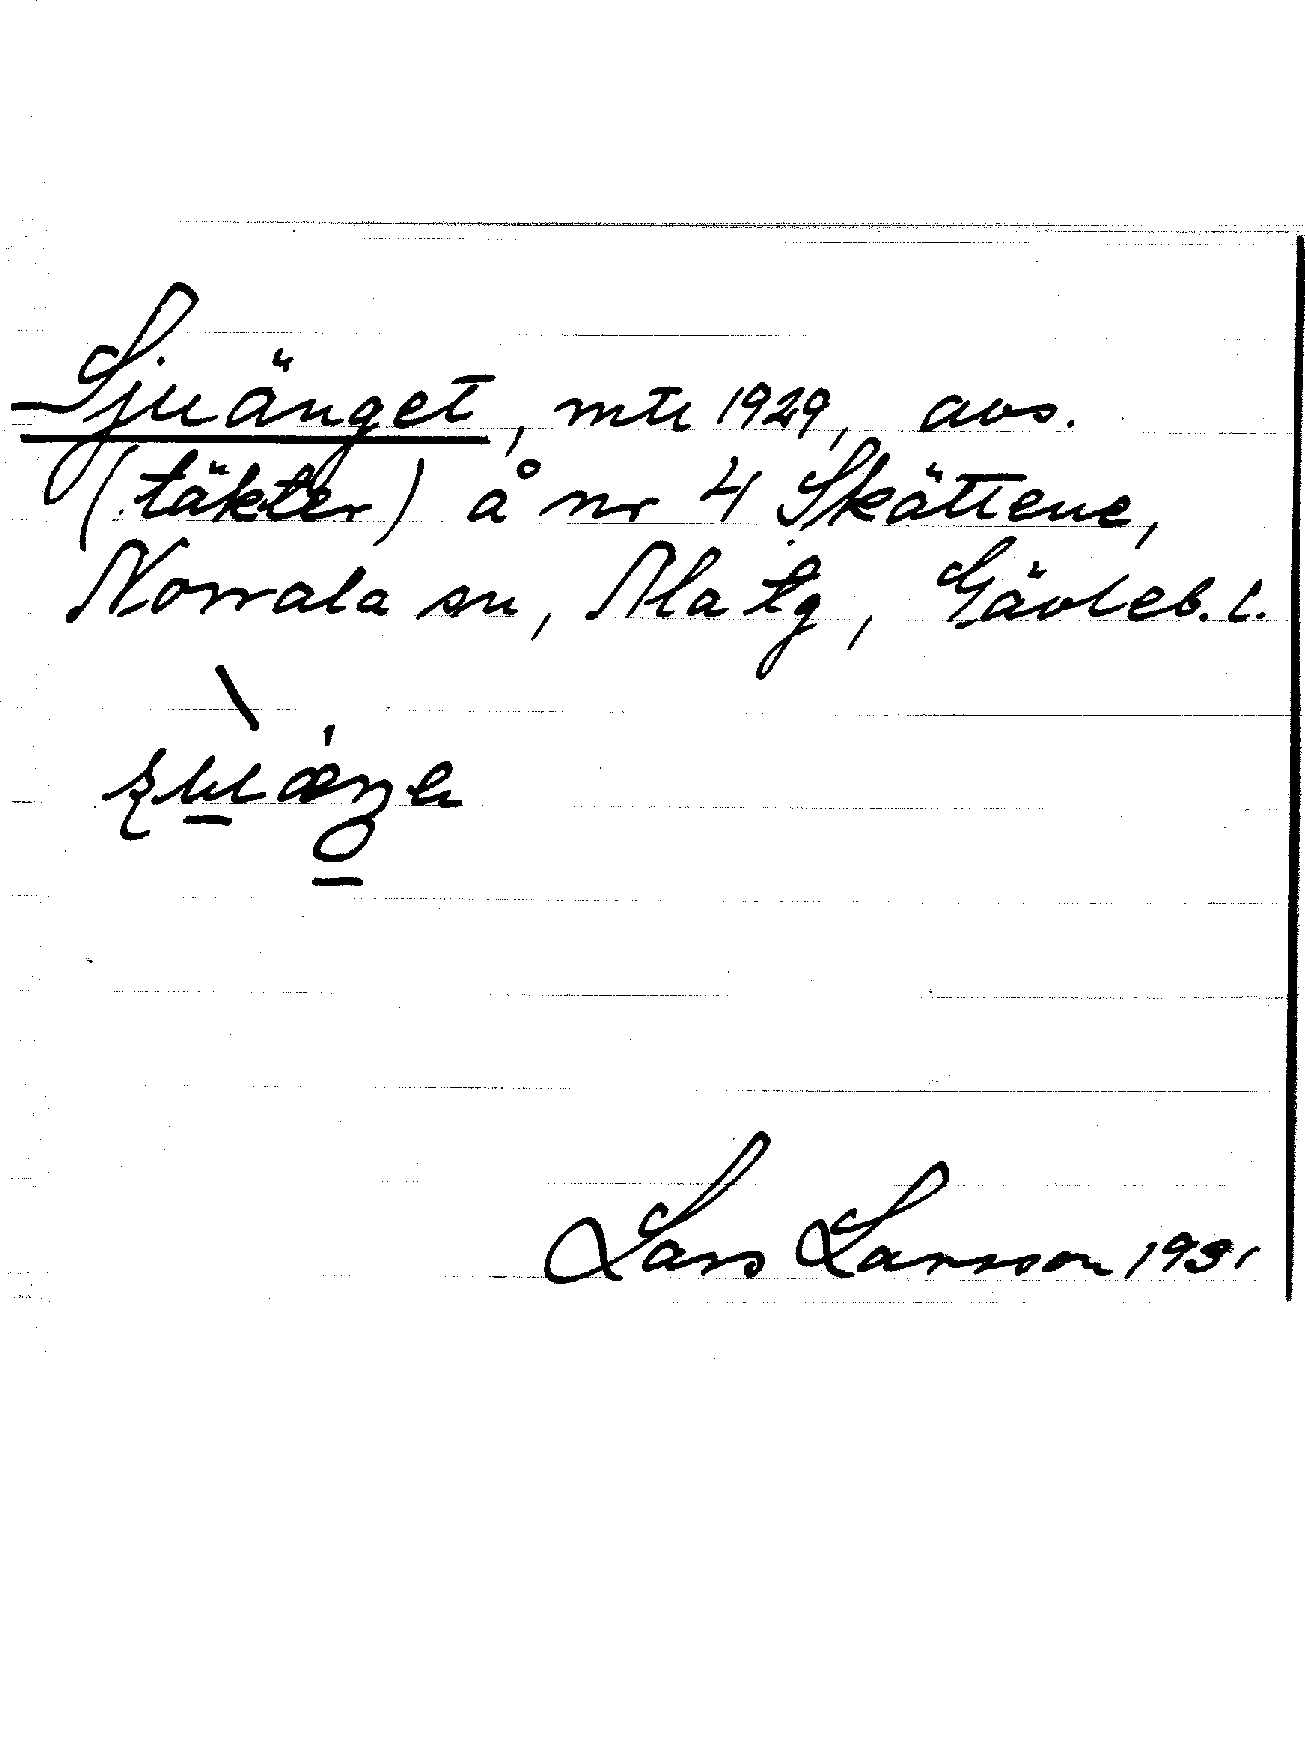 Sjuänget, mtl 1929, avs.
(täkter) å nr 4 Skättene,
Norrala sn, Ala tg, Gävleb. l.
Lars Larsson 1931